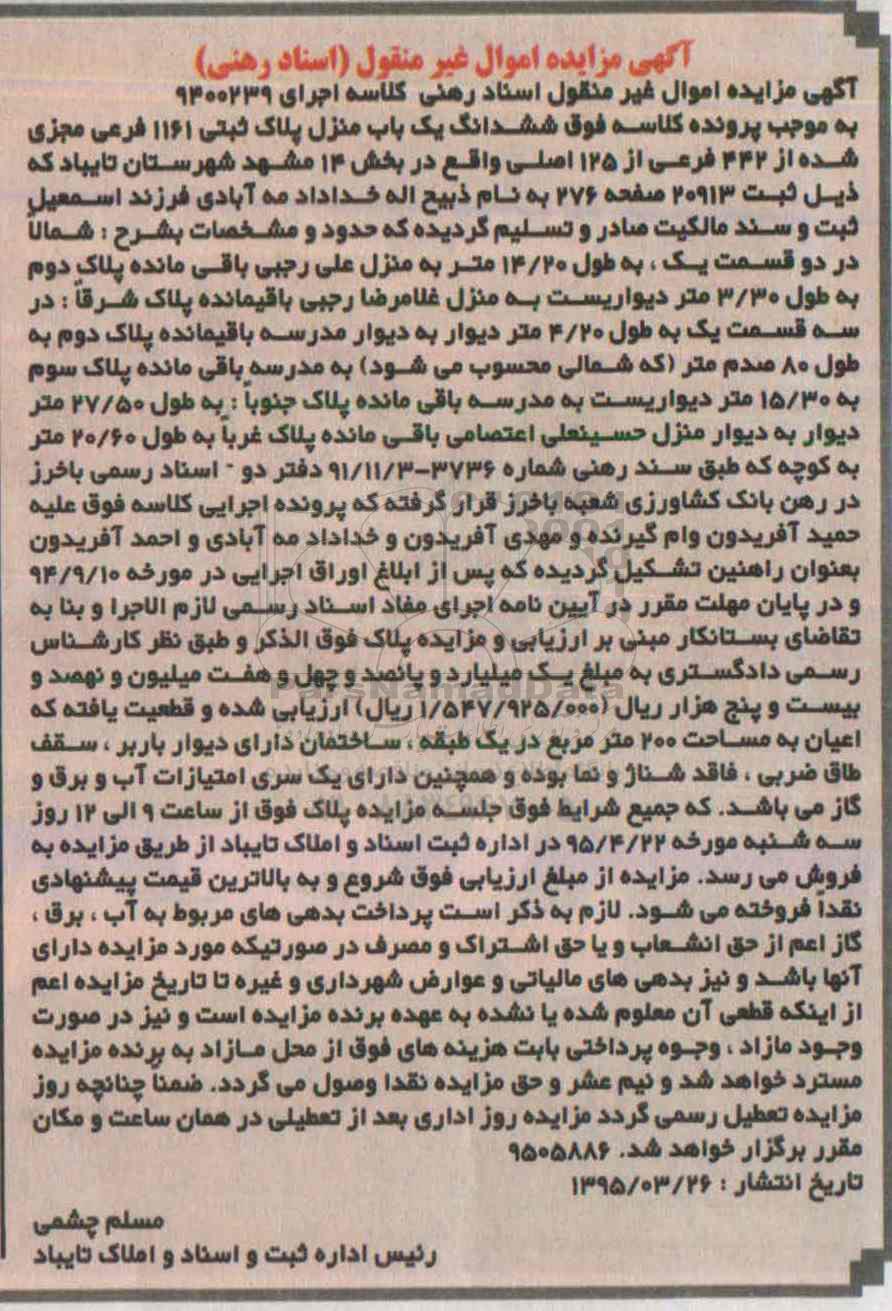 آگهی مزایده اموال غیر منقول (اسناد رهنی)
آگهی مزایده اموال غیر منقول اسناد رهنی کلاسه اجرای ۹۴۰۰۲۳۹
به موجب پرونده کلاسه فوق ششدانگ یک باب منزل پلاک ثبتی ۱۱۶۱ فرعی مجزی
شده از ۴۴۲ فرعی از ۱۲۵ اصلی واقع در بخش ۱۴ مشهد شهرستان تایباد که
ذیل ثبت ۲۰۹۱۳ صفحه ۲۷۶ به نام ذبیح اله خداداد مه آبادی فرزند اسمعیل
ثبت و سند مالکیت صادر و تسلیم گردیده که حدود و مشخصات بشرح : شمالاً
در دو قسمت یک ، به طول ۱۴/۲۰ متر به منزل علی رجبی باقی مانده پلاک دوم
به طول ۳/۳۰ متر دیواریست به منزل غلامرضا رجبی باقیمانده پلاک شرقاً : در
سه قسمت یک به طول ۴/۲۰ متر دیوار به دیوار مدرسه باقیمانده پلاک دوم به
طول ۸۰ صدم متر (که شمالی محسوب می شود) به مدرسه باقی مانده پلاک سوم
به ۱۵/۳۰ متر دیواریست به مدرسه باقی مانده پلاک جنوباً : به طول ۲۷/۵۰ متر
دیوار به دیوار منزل حسینعلی اعتصامی باقی مانده پلاک غرباً به طول ۲۰/۶۰ متر
به کوچه که طبق سند رهنی شماره ۳۷۳۶-۹۱/۱۱/۳ دفتر دو - اسناد رسمی باخرز
در رهن بانک کشاورزی شعبه باخرز قرار گرفته که پرونده اجرایی کلاسه فوق علیه
حمید آفریدون وام گیرنده و مهدی آفریدون و خداداد مه آبادی و احمد آفریدون
بعنوان راهنین تشکیل گردیده که پس از ابلاغ اوراق اجرایی در مورخه ۹۴/۹/۱۰
و در پایان مهلت مقرر در آیین نامه اجرای مفاد اسناد رسمی لازم الاجرا و بنا به
تقاضای بستانکار مبنی بر ارزیابی و مزایده پلاک فوق الذکر و طبق نظر کارشناس
رسمی دادگستری به مبلغ یک میلیارد و پانصد و چهل و هفت میلیون و نهصد و
بیست و پنج هزار ریال (۱/۵۴۷/۹۲۵/۰۰۰ ریال) ارزیابی شده و قطعیت یافته که
اعیان به مساحت ۲۰۰ متر مربع در یک طبقه ، ساختمان دارای دیوار باربر ، سقف
طاق ضربی ، فاقد شناژ و نما بوده و همچنین دارای یک سری امتیازات آب و برق و
گاز می باشد. که جمیع شرایط فوق جلسه مزایده پلاک فوق از ساعت ۹ الی ۱۲ روز
سه شنبه مورخه ۹۵/۴/۲۲ در اداره ثبت اسناد و املاک تایباد از طریق مزایده به
فروش می رسد. مزایده از مبلغ ارزیابی فوق شروع و به بالاترین قیمت پیشنهادی
نقداً فروخته می شود. لازم به ذکر است پرداخت بدهی های مربوط به آب ، برق ،
گاز اعم از حق انشعاب و یا حق اشتراک و مصرف در صورتیکه مورد مزایده دارای
آنها باشد و نیز بدهی های مالیاتی و عوارض شهرداری و غیره تا تاریخ مزایده اعم
از اینکه قطعی آن معلوم شده یا نشده به عهده برنده مزایده است و نیز در صورت
وجود مازاد ، وجوه پرداختی بابت هزینه های فوق از محل مازاد به برنده مزایده
مسترد خواهد شد و نیم عشر و حق مزایده نقدا وصول می گردد. ضمناً چنانچه روز
مزایده تعطیل رسمی گردد مزایده روز اداری بعد از تعطیلی در همان ساعت و مکان
مقرر برگزار خواهد شد. ۹۵۰۵۸۸۶
تاریخ انتشار : ۱۳۹۵/۰۳/۲۶
مسلم چشمی
رئیس اداره ثبت و اسناد و املاک تایباد
ParsNamadData